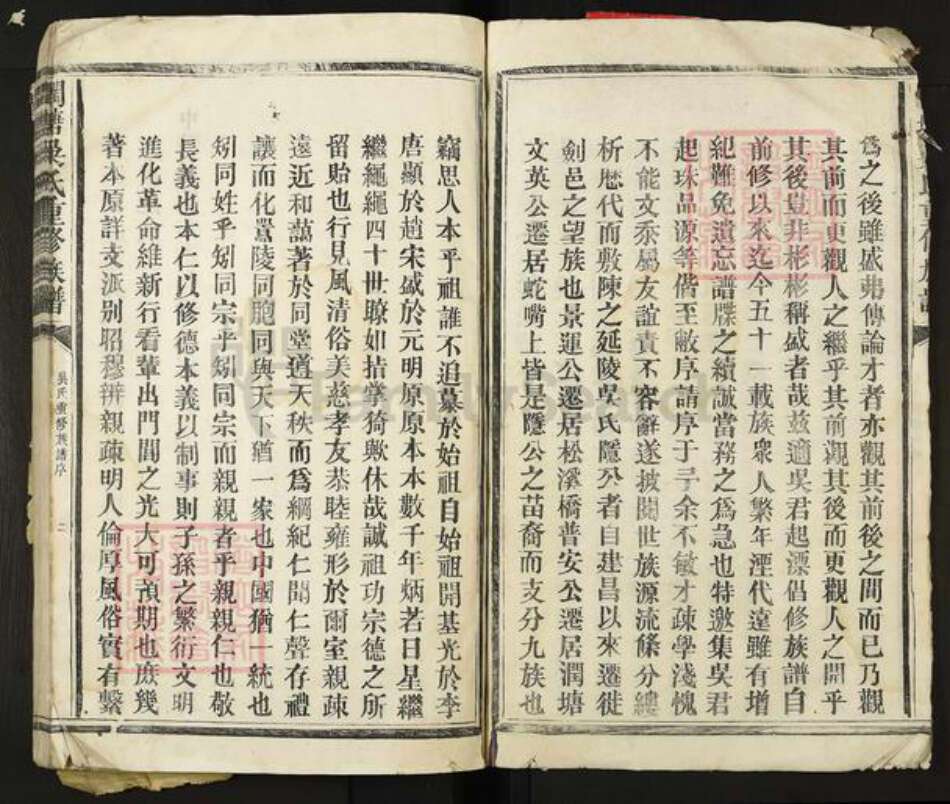 為之後雖盛弗傳論才者亦觀其前後之間而已乃觀
其前而更觀人之繼乎其前觀其後而更觀人之開乎
其後豈非彬彬稱盛者哉茲適吳君起漂倡修族譜自
前修以來迄今五十一載族衆人繁年湮代遠雖有增
紀難免遺忘譜牒之續誠當務之為急也特邀集吳君
起珠品源等偕至敝序請序于予余不敏才疎學淺愧
不能文忝屬友誼責不容辭遂披閱世族源流條分縷
析歷代而敷陳之延陵吳氏隱公者自建昌以來遷徙
劍邑之望族也景運公遷居松溪橋普安公遷居潤塘
文英公遷居蛇嘴上皆是隱公之苗裔而支分九族也
竊思人本乎祖誰不追慕於始祖自始祖開基光於李
唐顯於趙宋盛於元明原原本本數千年炳若日星繼
繼繩繩四十世瞭如拮掌猗歟休哉誠祖功宗德之所
留貽也行見風清俗美慈孝友恭睦雍形於爾室親疎
遠近和藹著於同堂道天秩而為綱紀仁聞仁聲存禮
讓而化囂陵同胞同與天下猶一家也中國猶一統也
矧同姓乎矧同宗乎矧同宗而親親者乎親親仁也敬
長義也本仁以修德本義以制事則子孫之繁衍文明
進化革命維新行看輩出門閭之光大可預期也庶幾
著本原詳支派別昭穆辨親疎明人倫厚風俗實有繫
潤塘吳氏重修族譜
吳氏重修族譜序
二
FamilySearch